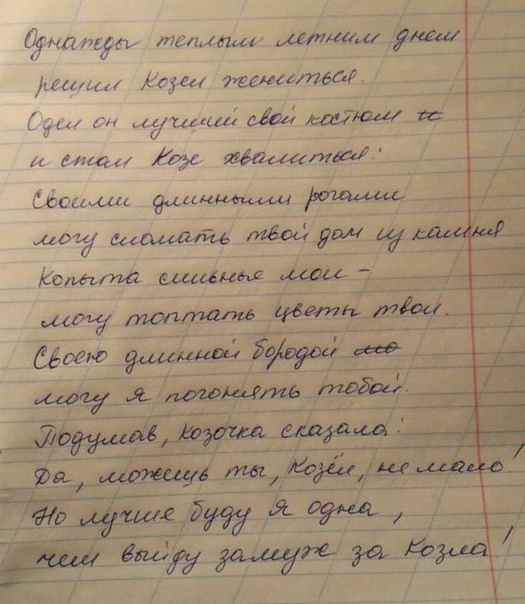 Однажды теплым летним днем
решил Козел жениться.
Одел он лучший свой костюм и
и стал Козе хвалиться:
Своими длинными рогами
могу сломать твой дом из камня
Копыта сильные мои –
могу топтать цветы твои.
Своею длинной бородой мо
могу я погонять тобой.
Подумав, Козочка сказала:
Да, можешь ты, Козёл, не мало!
Но лучше буду я одна,
чем выйду замуж за Козла!